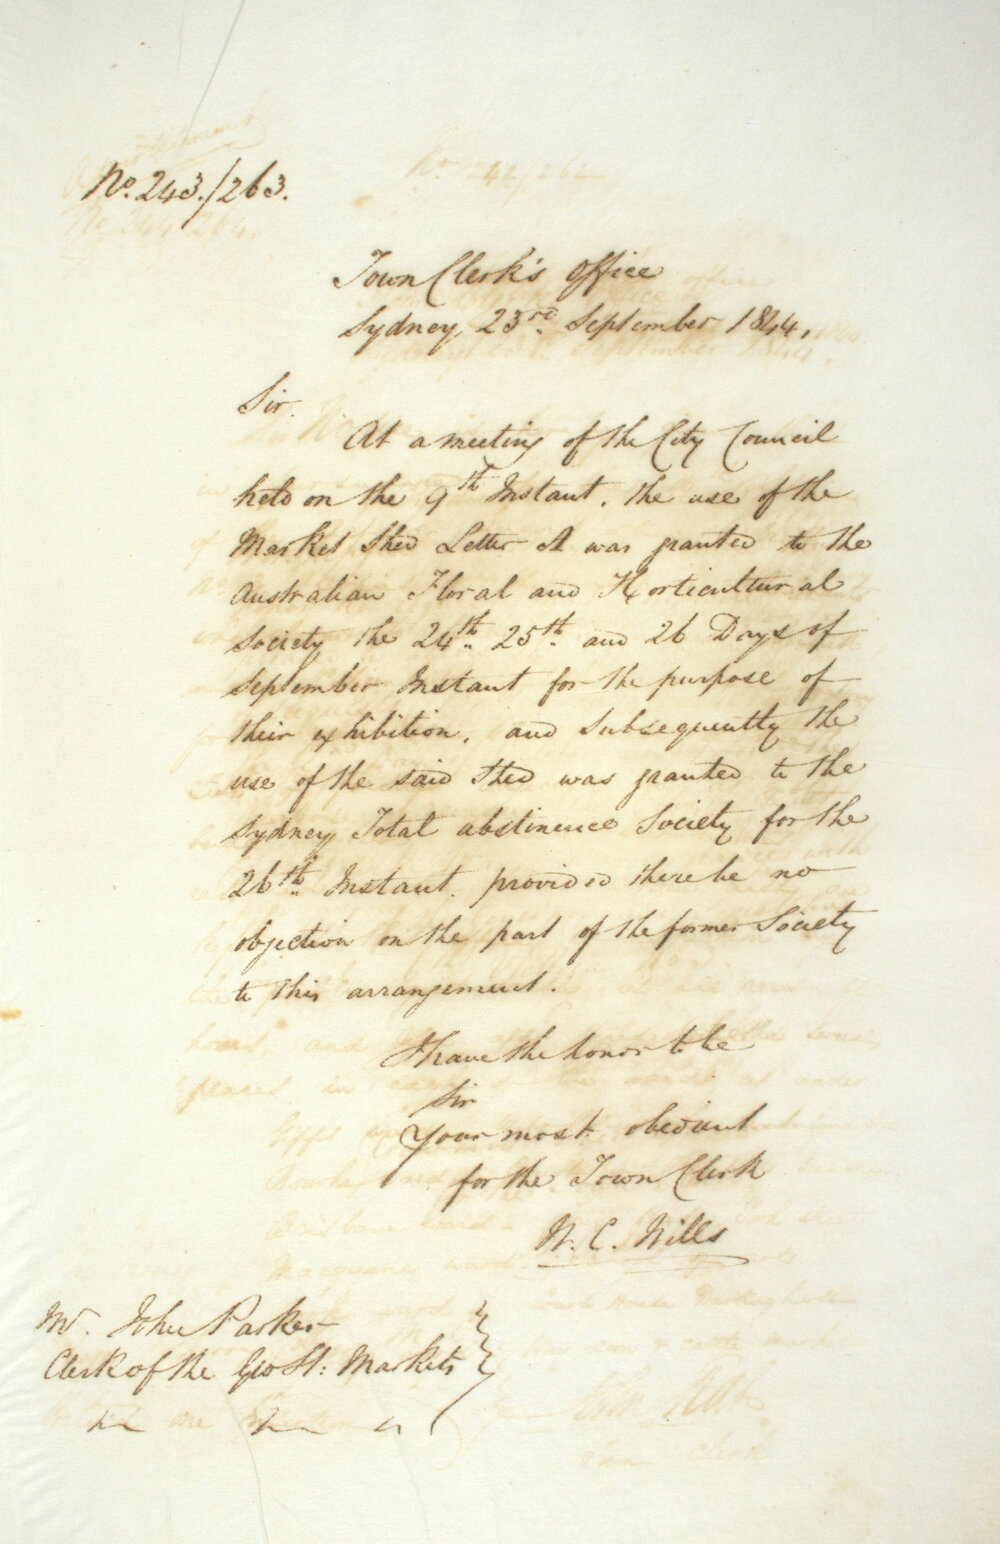 No. 243./263.
Town Clerk's Office
Sydney, 23rd. September 1844.
Sir.
At a meeting of the City Council
held on the 9th Instant. the use of the
Market Shed Letter A was granted to the
Australian Floral and Horticultural
Society the 24th. 25th. and 26 Days of
September Instant for the purpose of
their exhibition. and Subsequently the
use of the said Shed was granted to the
Sydney Total abstinence Society for the
26th. Instant. provided there be no
objection on the part of the former Society
to this arrangement.
I have the honor to be
Sir
Your most obedient
for the Town Clerk
W. C. Wills
Mr. John Parker
Clerk of the Geo St: Markets